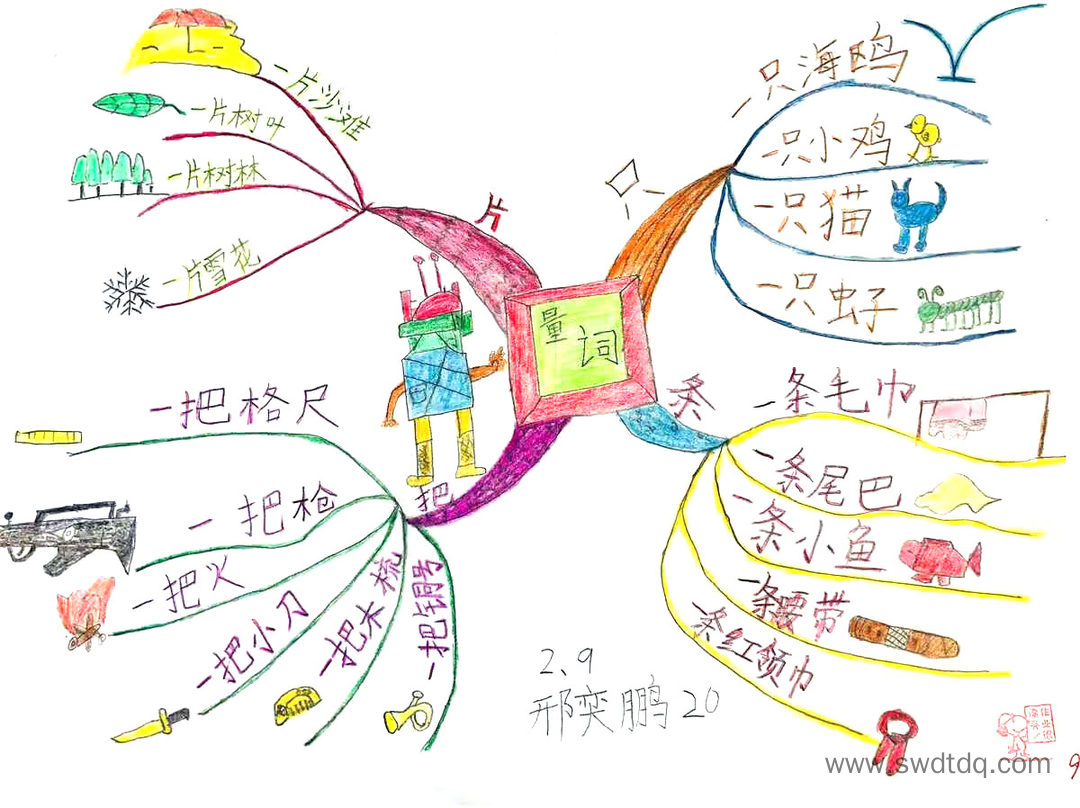 量词
片
一片沙滩
一片树叶
一片树林
一片雪花
只
一只海鸥
一只小鸡
一只猫
一只虫子
条
一条毛巾
一条尾巴
一条小鱼
一条腰带
一条红领巾
把
一把格尺
一把枪
一把火
一把小刀
一把木梳
一把铜号
2、9
邢奕鹏 20
www.swdtdq.com
9